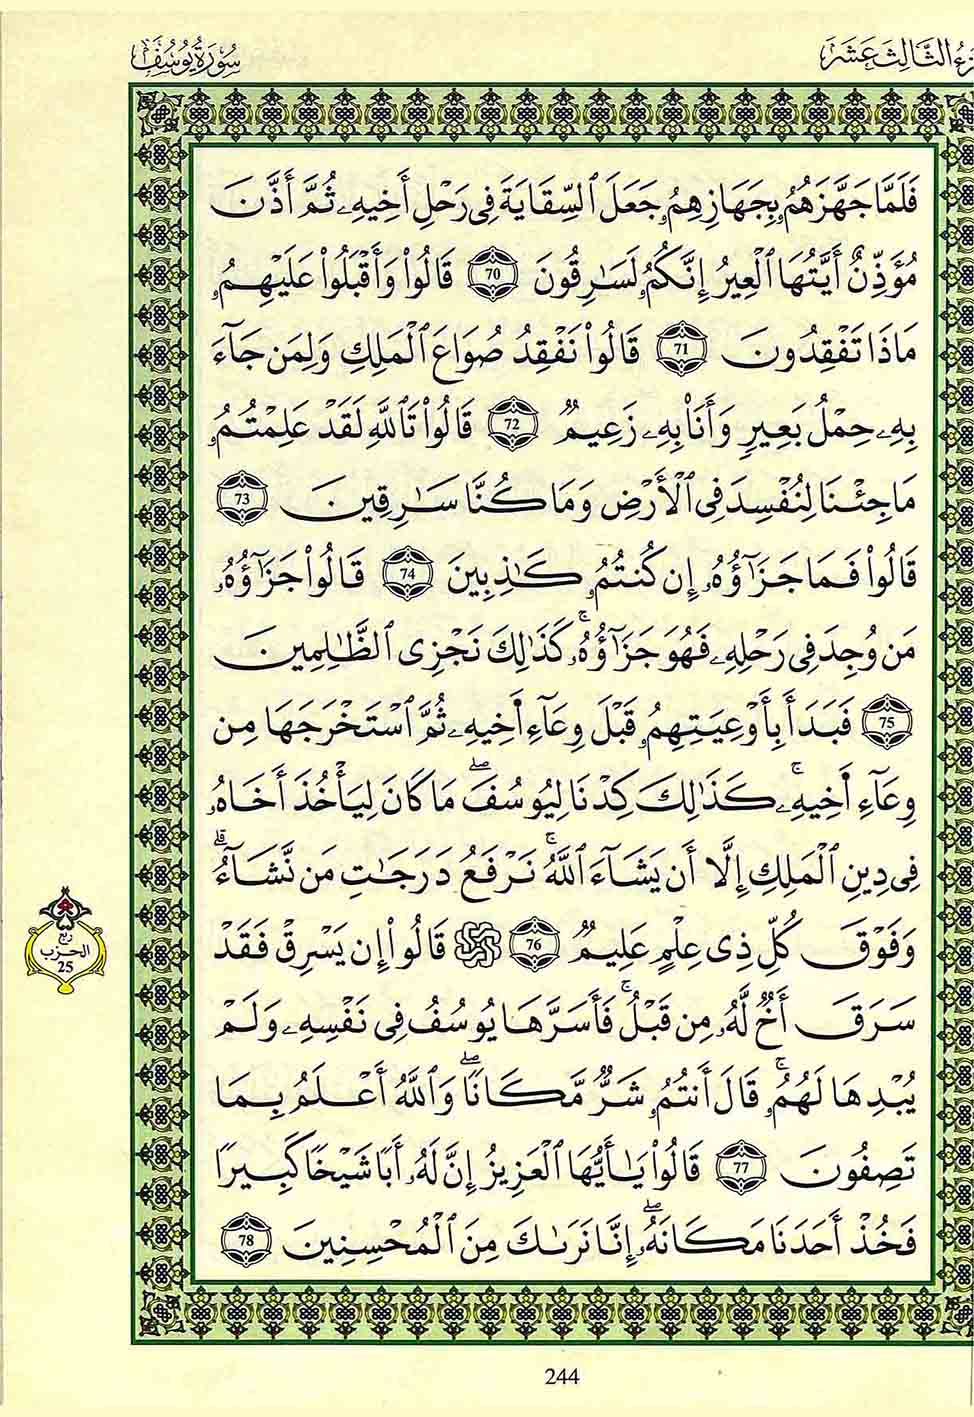 سُورَةُ يُوسُفَ
الثَّالِثَ عَشَرَ
فَلَمَّا جَهَّزَهُمُۥ بِجَهَازِهِمُۥ جَعَلَ ٱلسِّقَايَةَ فِى رَحْلِ أَخِيهِۦ ثُمَّ أَذَّنَ
مُؤَذِّنٌ أَيَّتُهَا ٱلْعِيرُ إِنَّكُمُۥ لَسَٰرِقُونَ 70 قَالُوا۟ وَأَقْبَلُوا۟ عَلَيْهِمُۥ
مَاذَا تَفْقِدُونَ 71 قَالُوا۟ نَفْقِدُ صُوَاعَ ٱلْمَلِكِ وَلِمَن جَآءَ
بِهِۦ حِمْلُ بَعِيرٍ وَأَنَا۠ بِهِۦ زَعِيمٌ 72 قَالُوا۟ تَٱللَّهِ لَقَدْ عَلِمْتُمُۥ
مَا جِئْنَا لِنُفْسِدَ فِى ٱلْأَرْضِ وَمَا كُنَّا سَٰرِقِينَ 73
قَالُوا۟ فَمَا جَزَٰٓؤُهُۥٓ إِن كُنتُمُۥ كَٰذِبِينَ 74 قَالُوا۟ جَزَٰٓؤُهُۥ
مَن وُجِدَ فِى رَحْلِهِۦ فَهُوَ جَزَٰٓؤُهُۥ ۚ كَذَٰلِكَ نَجْزِى ٱلظَّٰلِمِينَ
75 فَبَدَأَ بِأَوْعِيَتِهِمُۥ قَبْلَ وِعَآءِ أَخِيهِۦ ثُمَّ ٱسْتَخْرَجَهَا مِن
وِعَآءِ أَخِيهِۦ ۚ كَذَٰلِكَ كِدْنَا لِيُوسُفَ ۖ مَا كَانَ لِيَأْخُذَ أَخَاهُۥ
فِى دِينِ ٱلْمَلِكِ إِلَّا أَن يَشَآءَ ٱللَّهُ ۚ نَرْفَعُ دَرَجَٰتِ مَن نَّشَآءُ ۗ
وَفَوْقَ كُلِّ ذِى عِلْمٍ عَلِيمٌ 76 قَالُوا۟ إِن يَسْرِقْ فَقَدْ
سَرَقَ أَخٌ لَّهُۥ مِن قَبْلُ ۚ فَأَسَرَّهَا يُوسُفُ فِى نَفْسِهِۦ وَلَمْ
يُبْدِهَا لَهُمُۥ ۚ قَالَ أَنتُمُۥ شَرٌّ مَّكَانًا ۖ وَٱللَّهُ أَعْلَمُ بِمَا
تَصِفُونَ 77 قَالُوا۟ يَٰٓأَيُّهَا ٱلْعَزِيزُ إِنَّ لَهُۥٓ أَبًا شَيْخًا كَبِيرًا
فَخُذْ أَحَدَنَا مَكَانَهُۥٓ ۖ إِنَّا نَرَىٰكَ مِنَ ٱلْمُحْسِنِينَ 78
ربع
الحزب
25
244